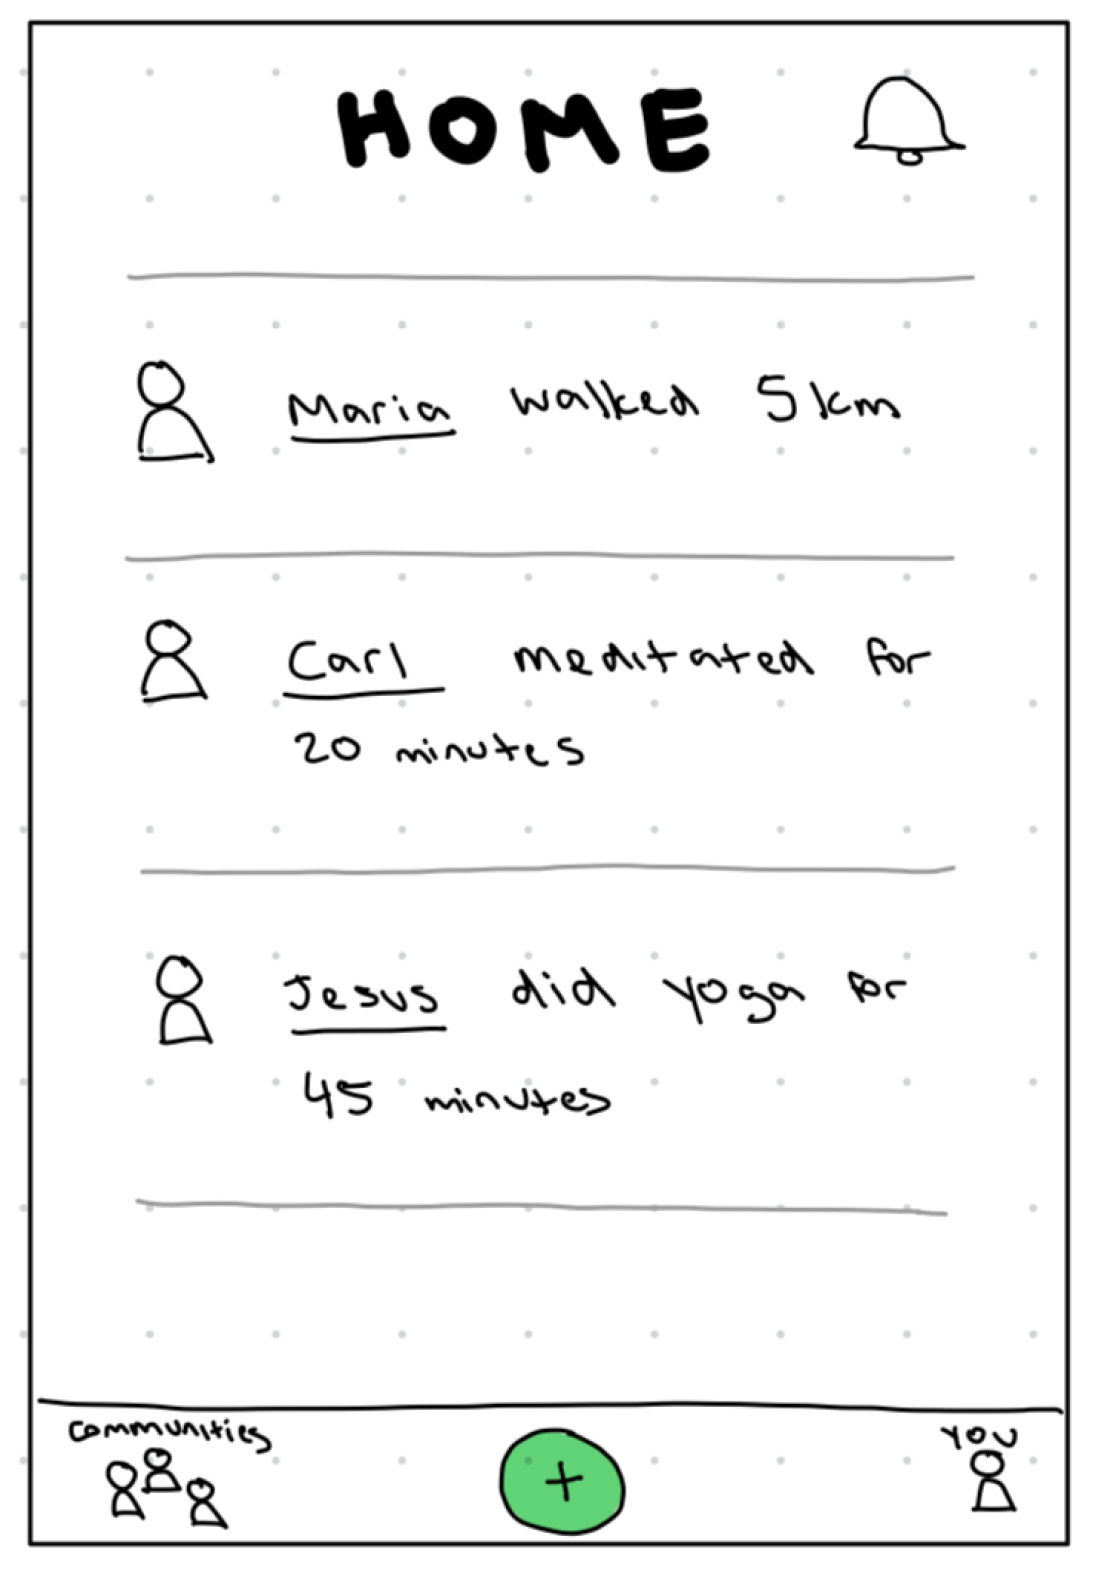 HOME
Maria walked 5km
Carl meditated for
20 minutes
Jesus did yoga for
45 minutes
communities
+
you